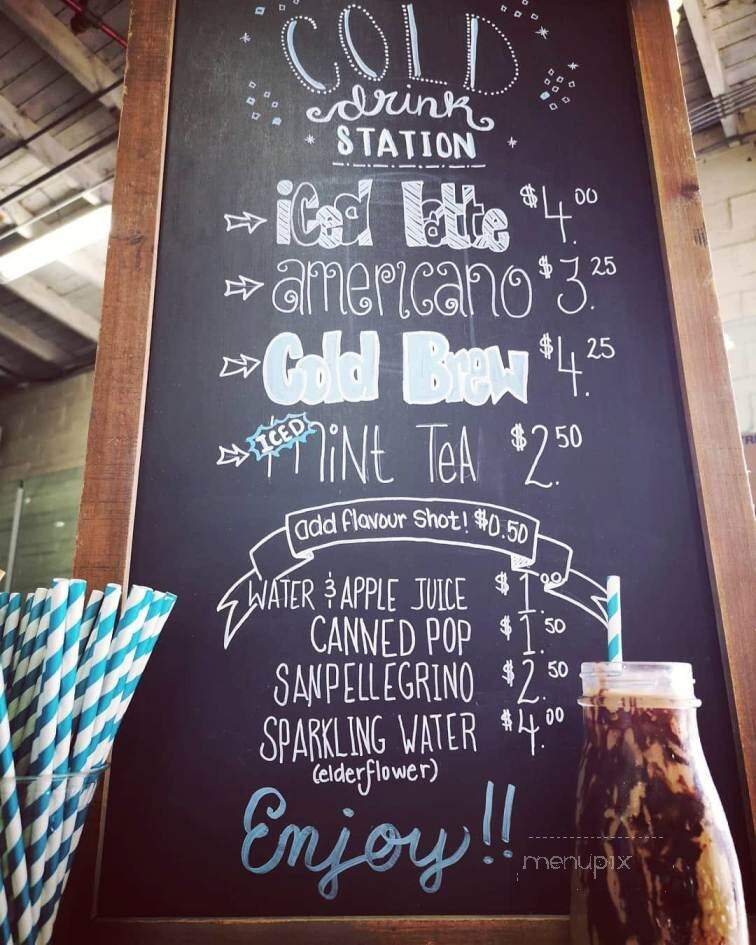 COLD
drink
STATION
iced latte $4.00
americano $3.25
Cold Brew $4.25
ICED MINT TEA $2.50
add flavour shot! $0.50
WATER & APPLE JUICE $1.00
CANNED POP $1.50
SANPELLEGRINO $2.50
SPARKLING WATER $4.00
(elderflower)
Enjoy!!
menupix